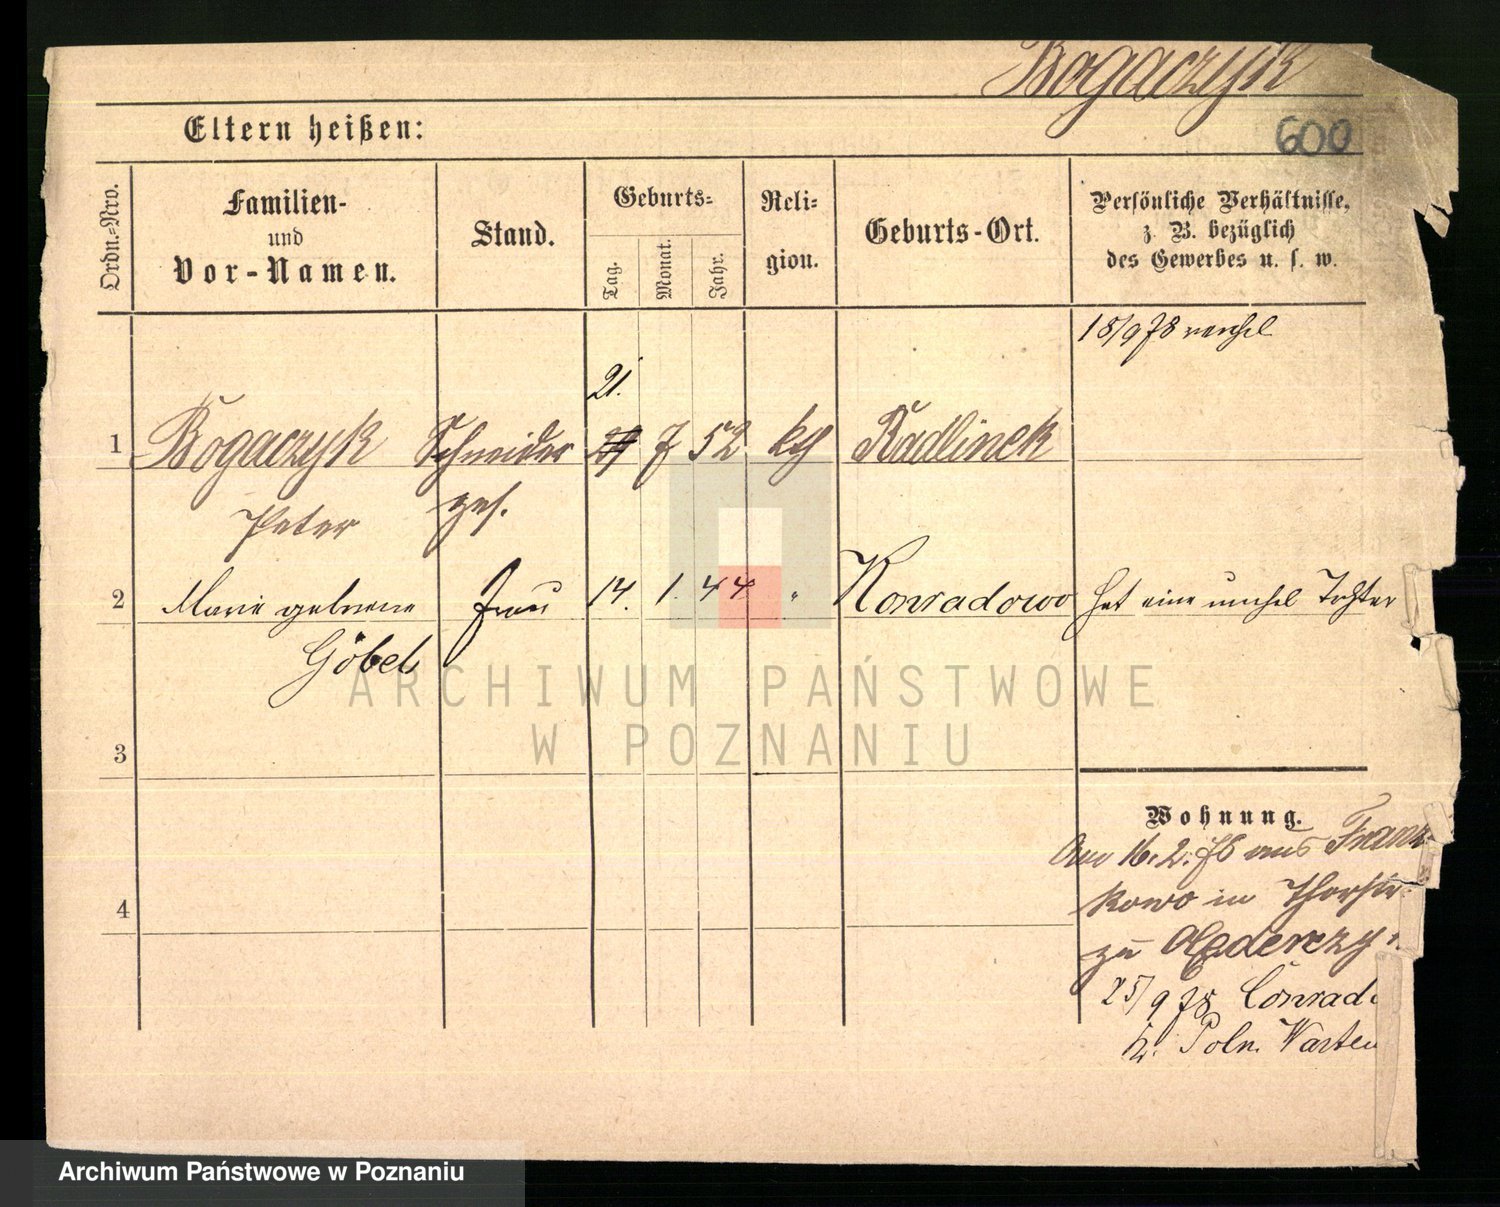 Bogaczyk
600
Eltern heißen:
Ordn.-Nro.
Familien-
und
Vor-Namen.
Stand.
Geburts-
Tag.
Monat.
Jahr.
Reli-
gion.
Geburts-Ort.
Persönliche Verhältnisse,
z. B. bezüglich
des Gewerbes u. s. w.
18/9 78
21.
1 Bogaczyk Schneider 7 52 kg Radlinek
Peter ges.
2 Marie geborene Frau 14. 1. 44 " Konradowo hat eine unehel Tochter
Göbel
3
4
Wohnung.
16. 2. 78 aus Franz-
kowo in Thorstr.
zu
25/9 78 Conrad
b. Poln. Warten
ARCHIWUM PAŃSTWOWE
W POZNANIU
Archiwum Państwowe w Poznaniu